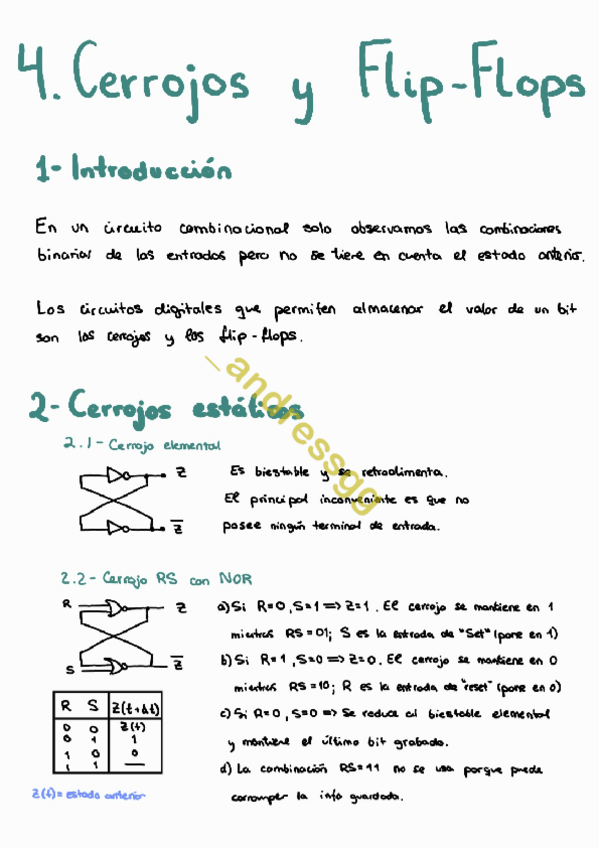 4. Cerrojos y Flip-Flops
1- Introducción
En un circuito combinacional solo observamos las combinaciones
binarias de las entradas pero no se tiene en cuenta el estado anterior.
Los circuitos digitales que permiten almacenar el valor de un bit
son los cerrojos y los flip-flops.
_andressgg
2- Cerrojos estáticos
2.1- Cerrojo elemental
Z
Z̅
Es biestable y se retroalimenta.
El principal inconveniente es que no
posee ningún terminal de entrada.
2.2- Cerrojo RS con NOR
R Z
S Z̅
a) Si R=0, S=1 => Z=1. El cerrojo se mantiene en 1
mientras RS=01; S es la entrada de "Set" (pone en 1)
b) Si R=1, S=0 => Z=0. El cerrojo se mantiene en 0
mientras RS=10; R es la entrada de "reset" (pone en 0)
c) Si R=0, S=0 => Se reduce al biestable elemental
y mantiene el último bit grabado.
d) La combinación RS=11 no se usa porque puede
corromper la info guardada.
R S Z(t+Δt)
0 0 Z(t)
0 1 1
1 0 0
1 1 —
Z(t)= estado anterior